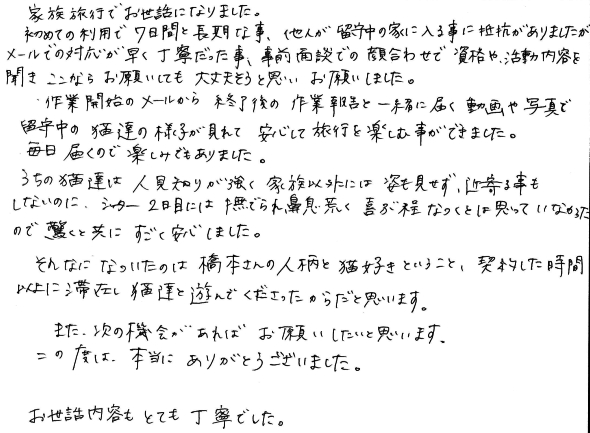 家族旅行でお世話になりました。
初めての利用で7日間と長期な事、他人が留守中の家に入る事に抵抗がありましたが
メールでの対応が早く丁寧だった事、事前面談での顔合わせで資格や、活動内容を
聞きここならお願いしても大丈夫そうと思いお願いしました。
作業開始のメールから終了後の作業報告と一緒に届く動画や写真で
留守中の猫達の様子が見れて安心して旅行を楽しむ事ができました。
毎日届くので楽しみでもありました。
うちの猫達は人見知りが強く家族以外には姿も見せず、近寄る事も
しないのに、シッター2日目には撫でられ鼻息荒く喜ぶ程なつくとは思っていなかった
ので驚くと共にすごく安心しました。
そんなになついたのは橋本さんの人柄と猫好きということ、契約した時間
以上に滞在し猫達と遊んでくださったからだと思います。
また、次の機会があればお願いしたいと思います。
この度は、本当にありがとうございました。
お世話内容もとても丁寧でした。